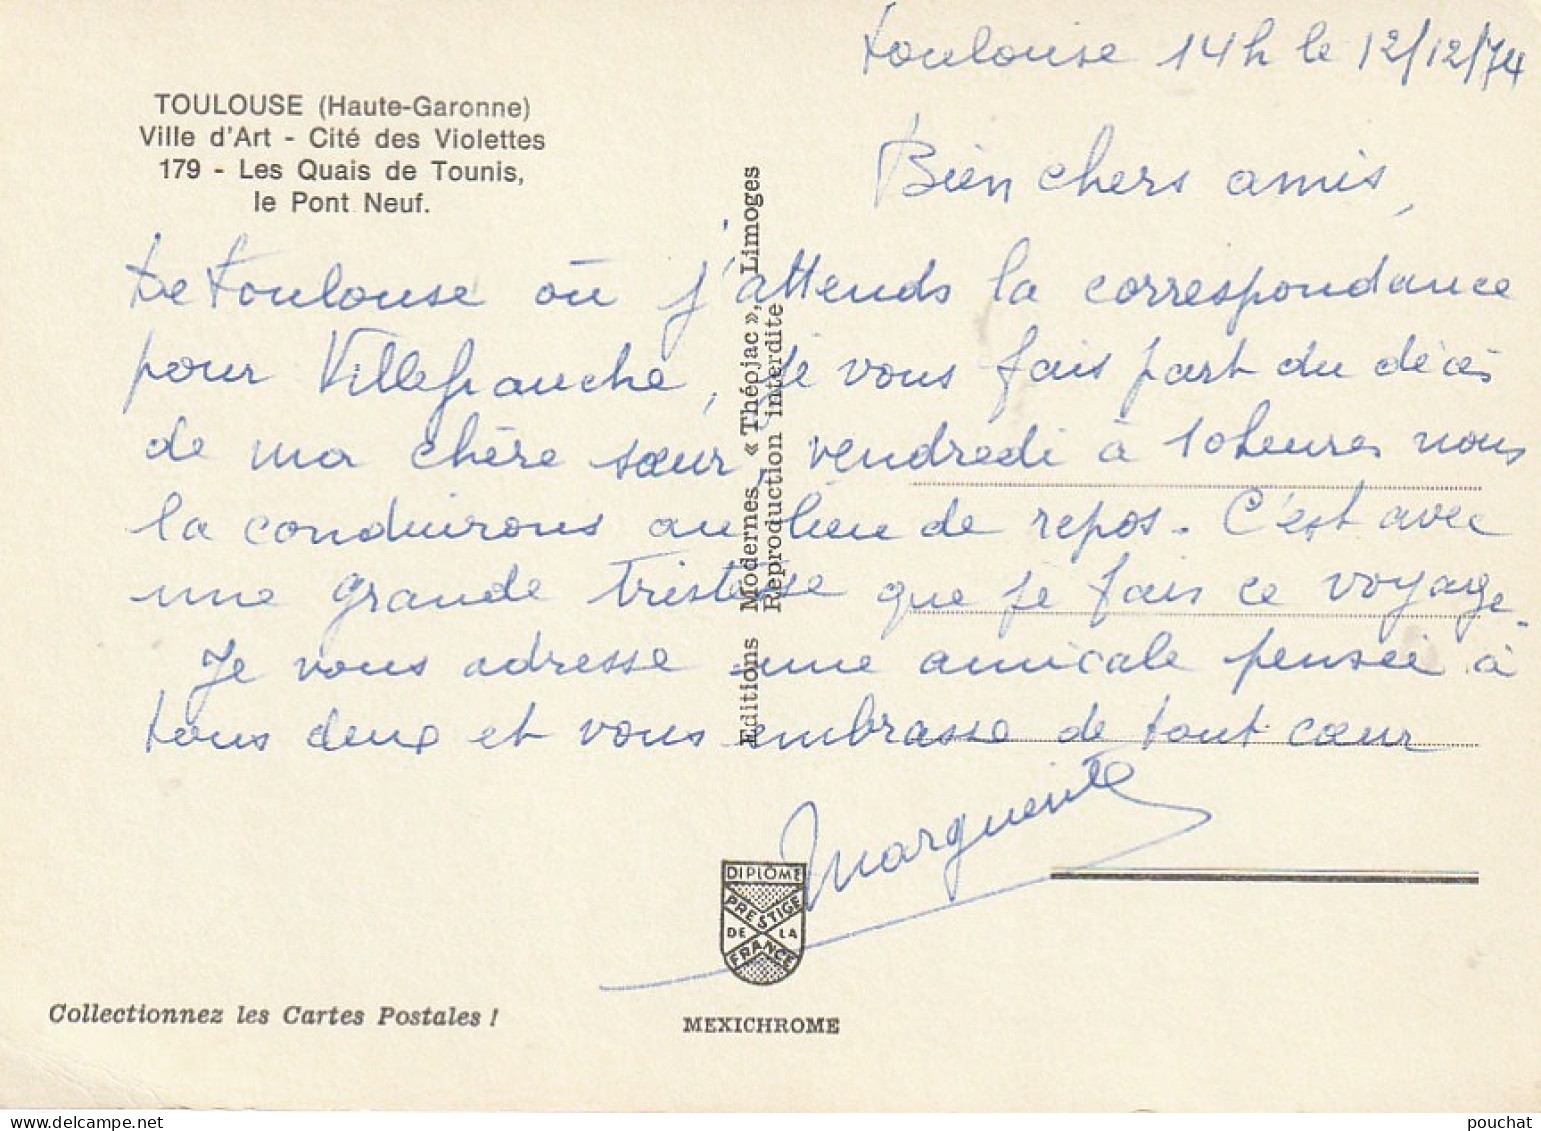 Toulouse 14h le 12/12/74
TOULOUSE (Haute-Garonne)
Ville d'Art - Cité des Violettes
179 - Les Quais de Tounis,
le Pont Neuf.
Bien chers amis,
De Toulouse où j'attends la correspondance
pour Villefranche, je vous fais part du décès
de ma chère sœur, vendredi à 10 heures nous
la conduirons au lieu de repos. C'est avec
une grande tristesse que je fais ce voyage.
Je vous adresse une amicale pensée à
tous deux et vous embrasse de tout cœur
Marguerite
Editions Modernes « Théojac », Limoges
Reproduction interdite
DIPLÔME
PRESTIGE
DE LA
FRANCE
Collectionnez les Cartes Postales !
MEXICHROME
delcampe.net
pouchat